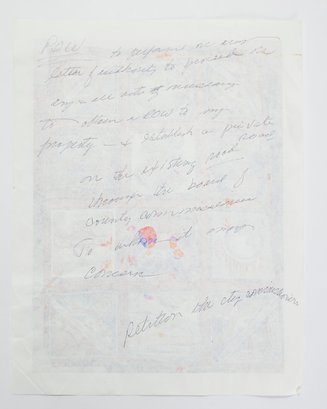 ROW to represent me any
letter of authority to proceed in
any & all acts necessary
to obtain a ROW to my
property & establish a private
road
on the existing road
through the board of
county commissioners
To whom it may
concern
Petition the cty commissioners